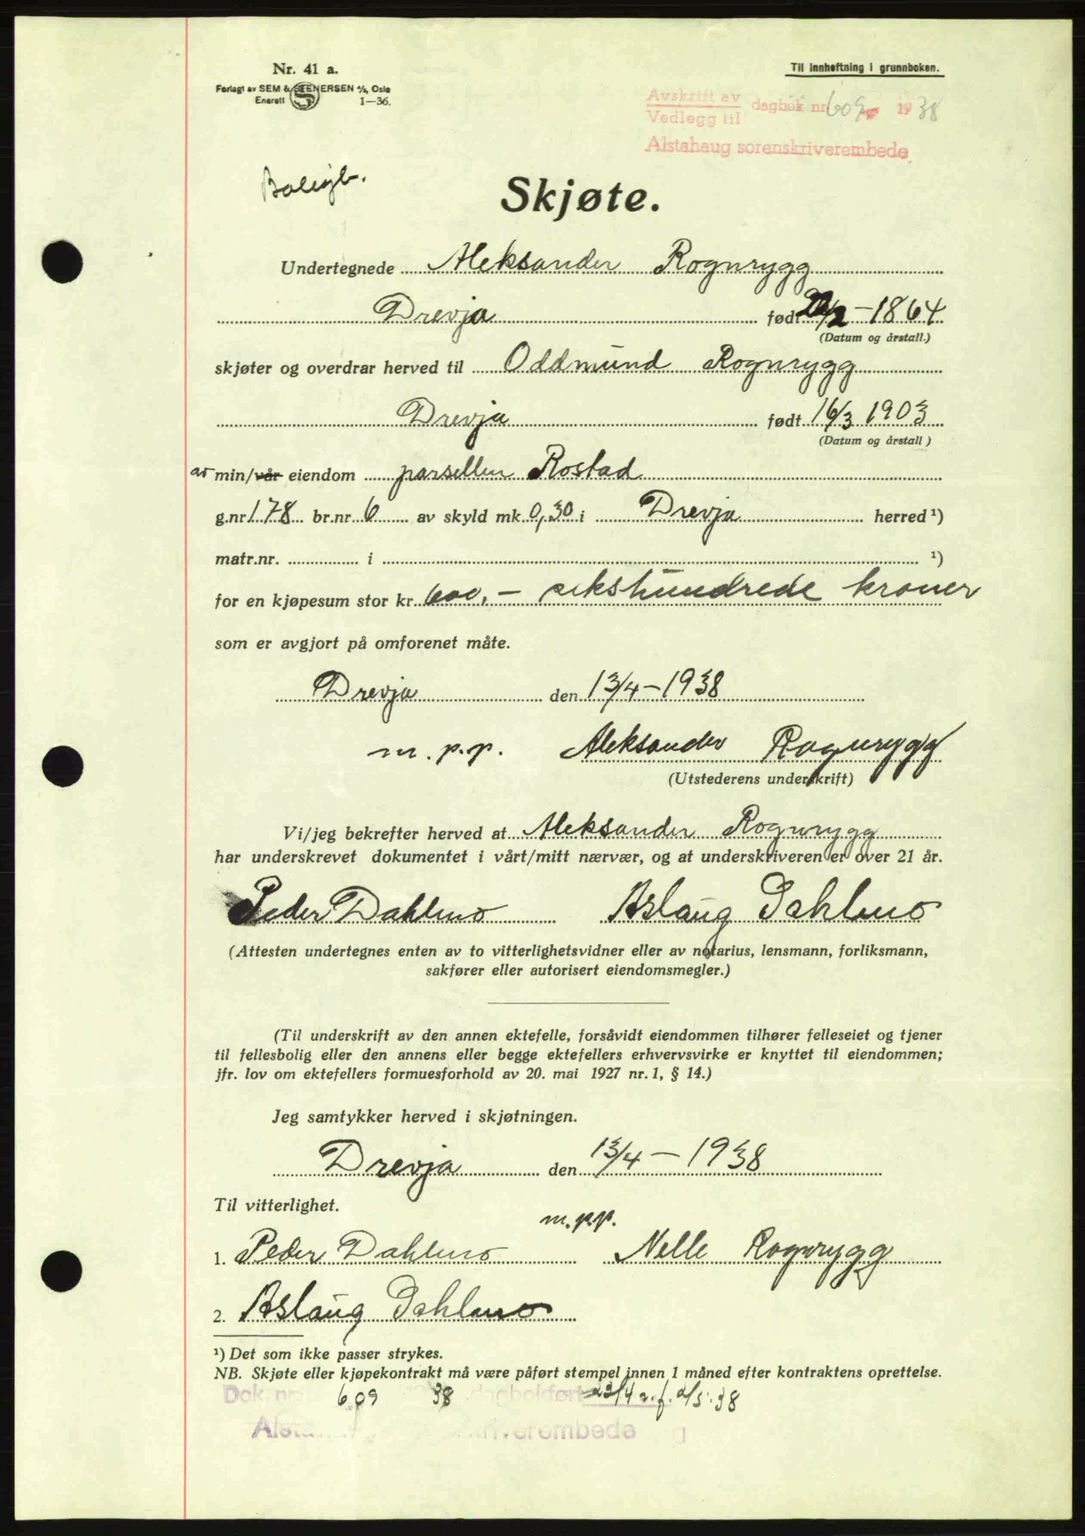 Nr. 41 a.
Forlagt av SEM & STENERSEN A/S, Oslo
Enerett 1—36.
Til innheftning i grunnboken.
Avskrift av
Vedlegg til
dagbok nr. 609 1938
Alstahaug sorenskriverembede
Skjøte.
Undertegnede Aleksander Rognrygg
Drevja født /2 - 1864
(Datum og årstall.)
skjøter og overdrar herved til Oddmund Rognrygg
Drevja født 16/3 1903
(Datum og årstall)
av min/vår eiendom parsellen Rostad
g.nr 178 br.nr 6 av skyld mk. 0,30 i Drevja herred ¹)
matr.nr. i ¹)
for en kjøpesum stor kr. 600,- sekshundrede kroner
som er avgjort på omforenet måte.
Drevja den 13/4-1938
m.p.p. Aleksander Rognrygg
(Utstederens underskrift)
Vi/jeg bekrefter herved at Aleksander Rognrygg
har underskrevet dokumentet i vårt/mitt nærvær, og at underskriveren er over 21 år.
Peder Dahlmo Aslaug Dahlmo
(Attesten undertegnes enten av to vitterlighetsvidner eller av notarius, lensmann, forliksmann,
sakfører eller autorisert eiendomsmegler.)
(Til underskrift av den annen ektefelle, forsåvidt eiendommen tilhører felleseiet og tjener
til fellesbolig eller den annens eller begge ektefellers erhvervsvirke er knyttet til eiendommen;
jfr. lov om ektefellers formuesforhold av 20. mai 1927 nr. 1, § 14.)
Jeg samtykker herved i skjøtningen.
Drevja den 13/4 - 1938
Til vitterlighet.
m.p.p.
1. Peder Dahlmo Nelle Rognrygg
2. Aslaug Dahlmo
¹) Det som ikke passer strykes.
NB. Skjøte eller kjøpekontrakt må være påført stempel innen 1 måned efter kontraktens oprettelse.
Dok. nr. 609 38 dagbokført 23/4 2/5 38